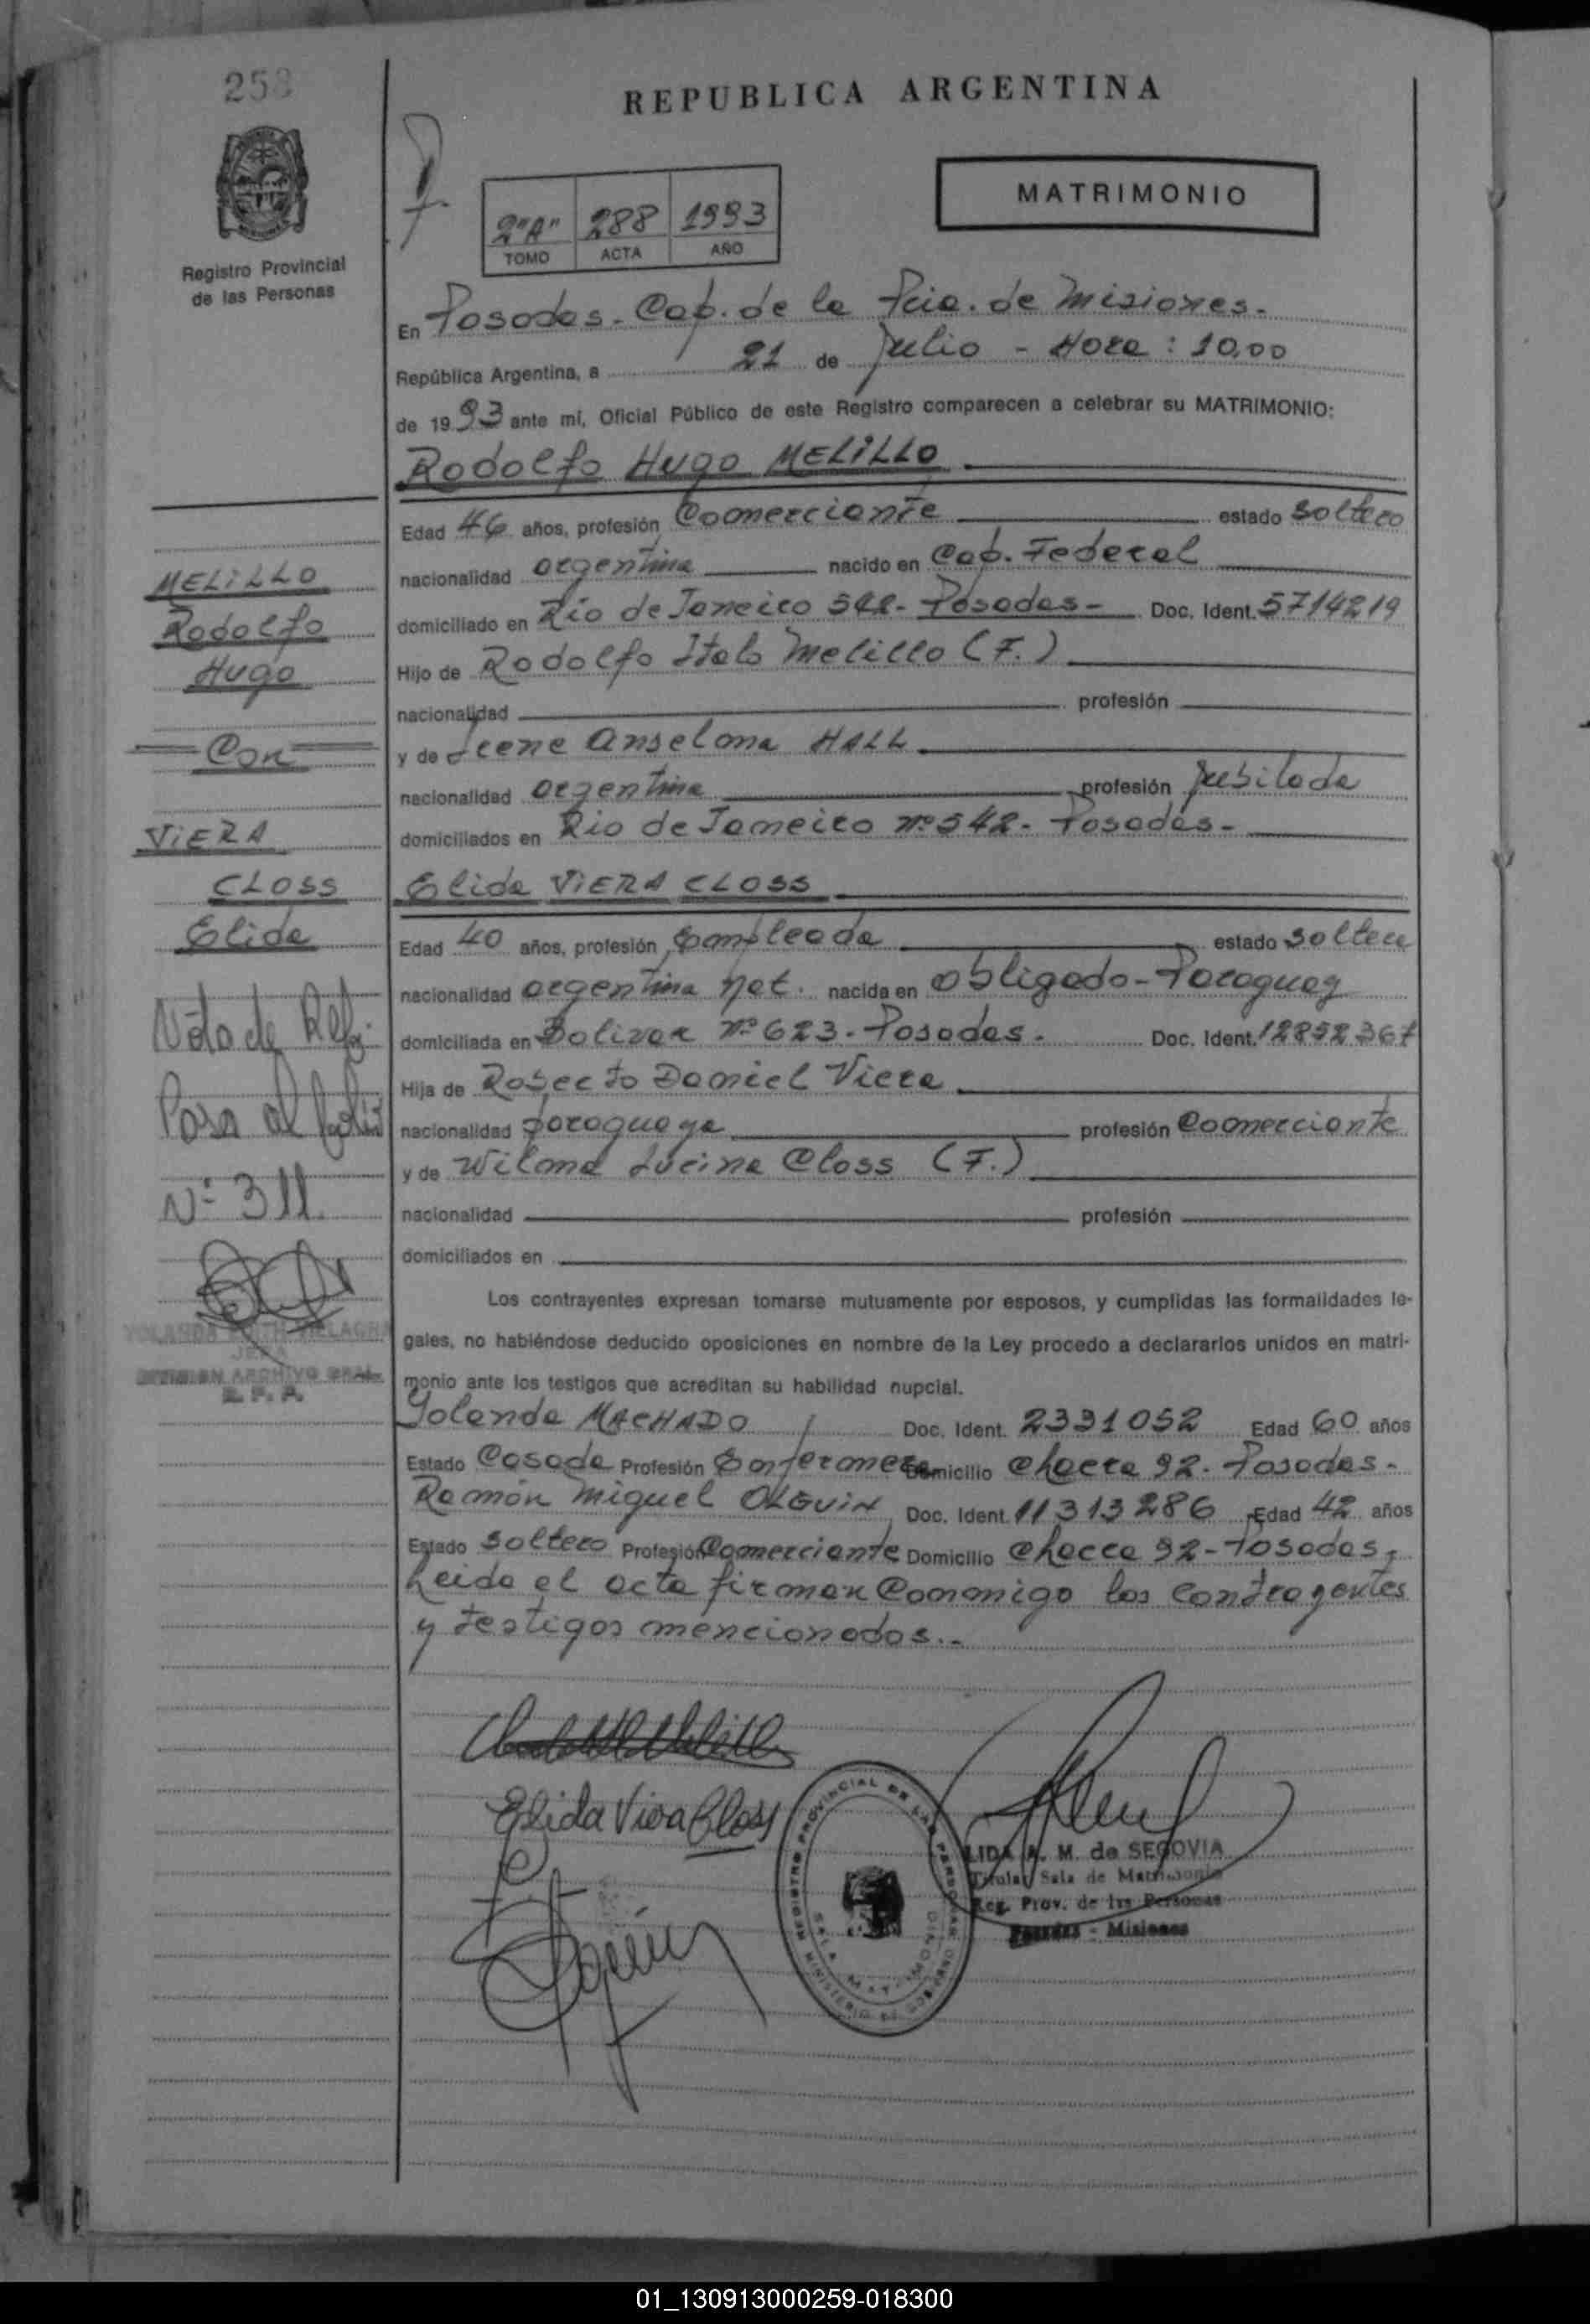 258
REPUBLICA ARGENTINA
MATRIMONIO
2"A" 288 1993
TOMO ACTA AÑO
Registro Provincial
de las Personas
En Posadas - Cap. de la Pcia. de Misiones.
República Argentina, a 21 de Julio - Hora: 10,00
de 1993 ante mí, Oficial Público de este Registro comparecen a celebrar su MATRIMONIO:
Rodolfo Hugo MELILLO
Edad 46 años, profesión Comerciante estado soltero
nacionalidad argentina nacido en Cap. Federal
domiciliado en Río de Janeiro 542 - Posadas - Doc. Ident. 5714219
Hijo de Rodolfo Italo Melillo (F.)
nacionalidad profesión
y de Irene Anselma HALL
nacionalidad argentina profesión Jubilada
domiciliados en Rio de Janeiro nº 542 - Posadas -
Elida VIERA CLOSS
Edad 40 años, profesión Empleada estado soltera
nacionalidad argentina nat. nacida en Obligado - Paraguay
domiciliada en Bolivar nº 623 - Posadas. Doc. Ident. 12852367
Hija de Roberto Daniel Viera
nacionalidad paraguaya profesión Comerciante
y de Wilma Lucina Closs (F.)
nacionalidad profesión
domiciliados en
Los contrayentes expresan tomarse mutuamente por esposos, y cumplidas las formalidades le-
gales, no habiéndose deducido oposiciones en nombre de la Ley procedo a declararlos unidos en matri-
monio ante los testigos que acreditan su habilidad nupcial.
Yolanda MACHADO Doc. Ident. 2331052 Edad 60 años
Estado Casada Profesión Enfermera Domicilio Chacra 92 - Posadas -
Ramón Miguel OLGUIN Doc. Ident. 11313286 Edad 42 años
Estado soltero Profesión Comerciante Domicilio Chacra 92 - Posadas -
Leida el acta firman Conmigo los Contrayentes
y testigos mencionados.-
MELILLO
Rodolfo
Hugo
Con
VIERA
CLOSS
Elida
Nota de Ref.
Pasa al folio
Nº 311.
JEFA
DIVISION ARCHIVO GRAL.
R. P. P.
Elida Viera Closs
REGISTRO PROVINCIAL DE LAS PERSONAS
SALA MATRIMONIO
LIDA A. M. de SEGOVIA
Titular Sala de Matrimonio
Reg. Prov. de las Personas
Posadas - Misiones
01_130913000259-018300